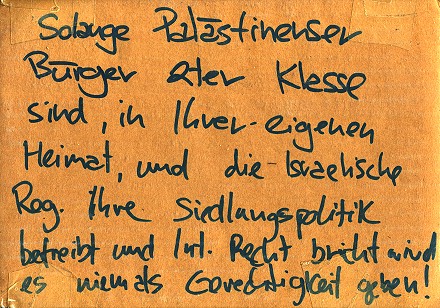 Solange Palästinenser
Bürger 2ter Klasse
sind, in Ihrer eigenen
Heimat, und die Israelische
Reg. Ihre Siedlungspolitik
betreibt und Int. Recht bricht wird
es niemals Gerechtigkeit geben!